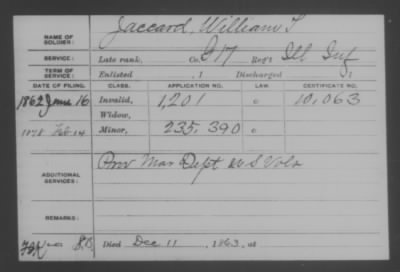 NAME OF SOLDIER: Jaccard, William T
SERVICE: Late rank, Co. C 17 Reg't Ill Inf
TERM OF SERVICE: Enlisted , 1 Discharged 1
DATE OF FILING. CLASS. APPLICATION NO. LAW. CERTIFICATE NO.
1862 June 16 Invalid, 1,201 o 10,063
Widow,
1878 Feb 14 Minor, 235,390 o
ADDITIONAL SERVICES: Prov Mar Dept U S Vols
REMARKS:
Died Dec 11, 1863, at